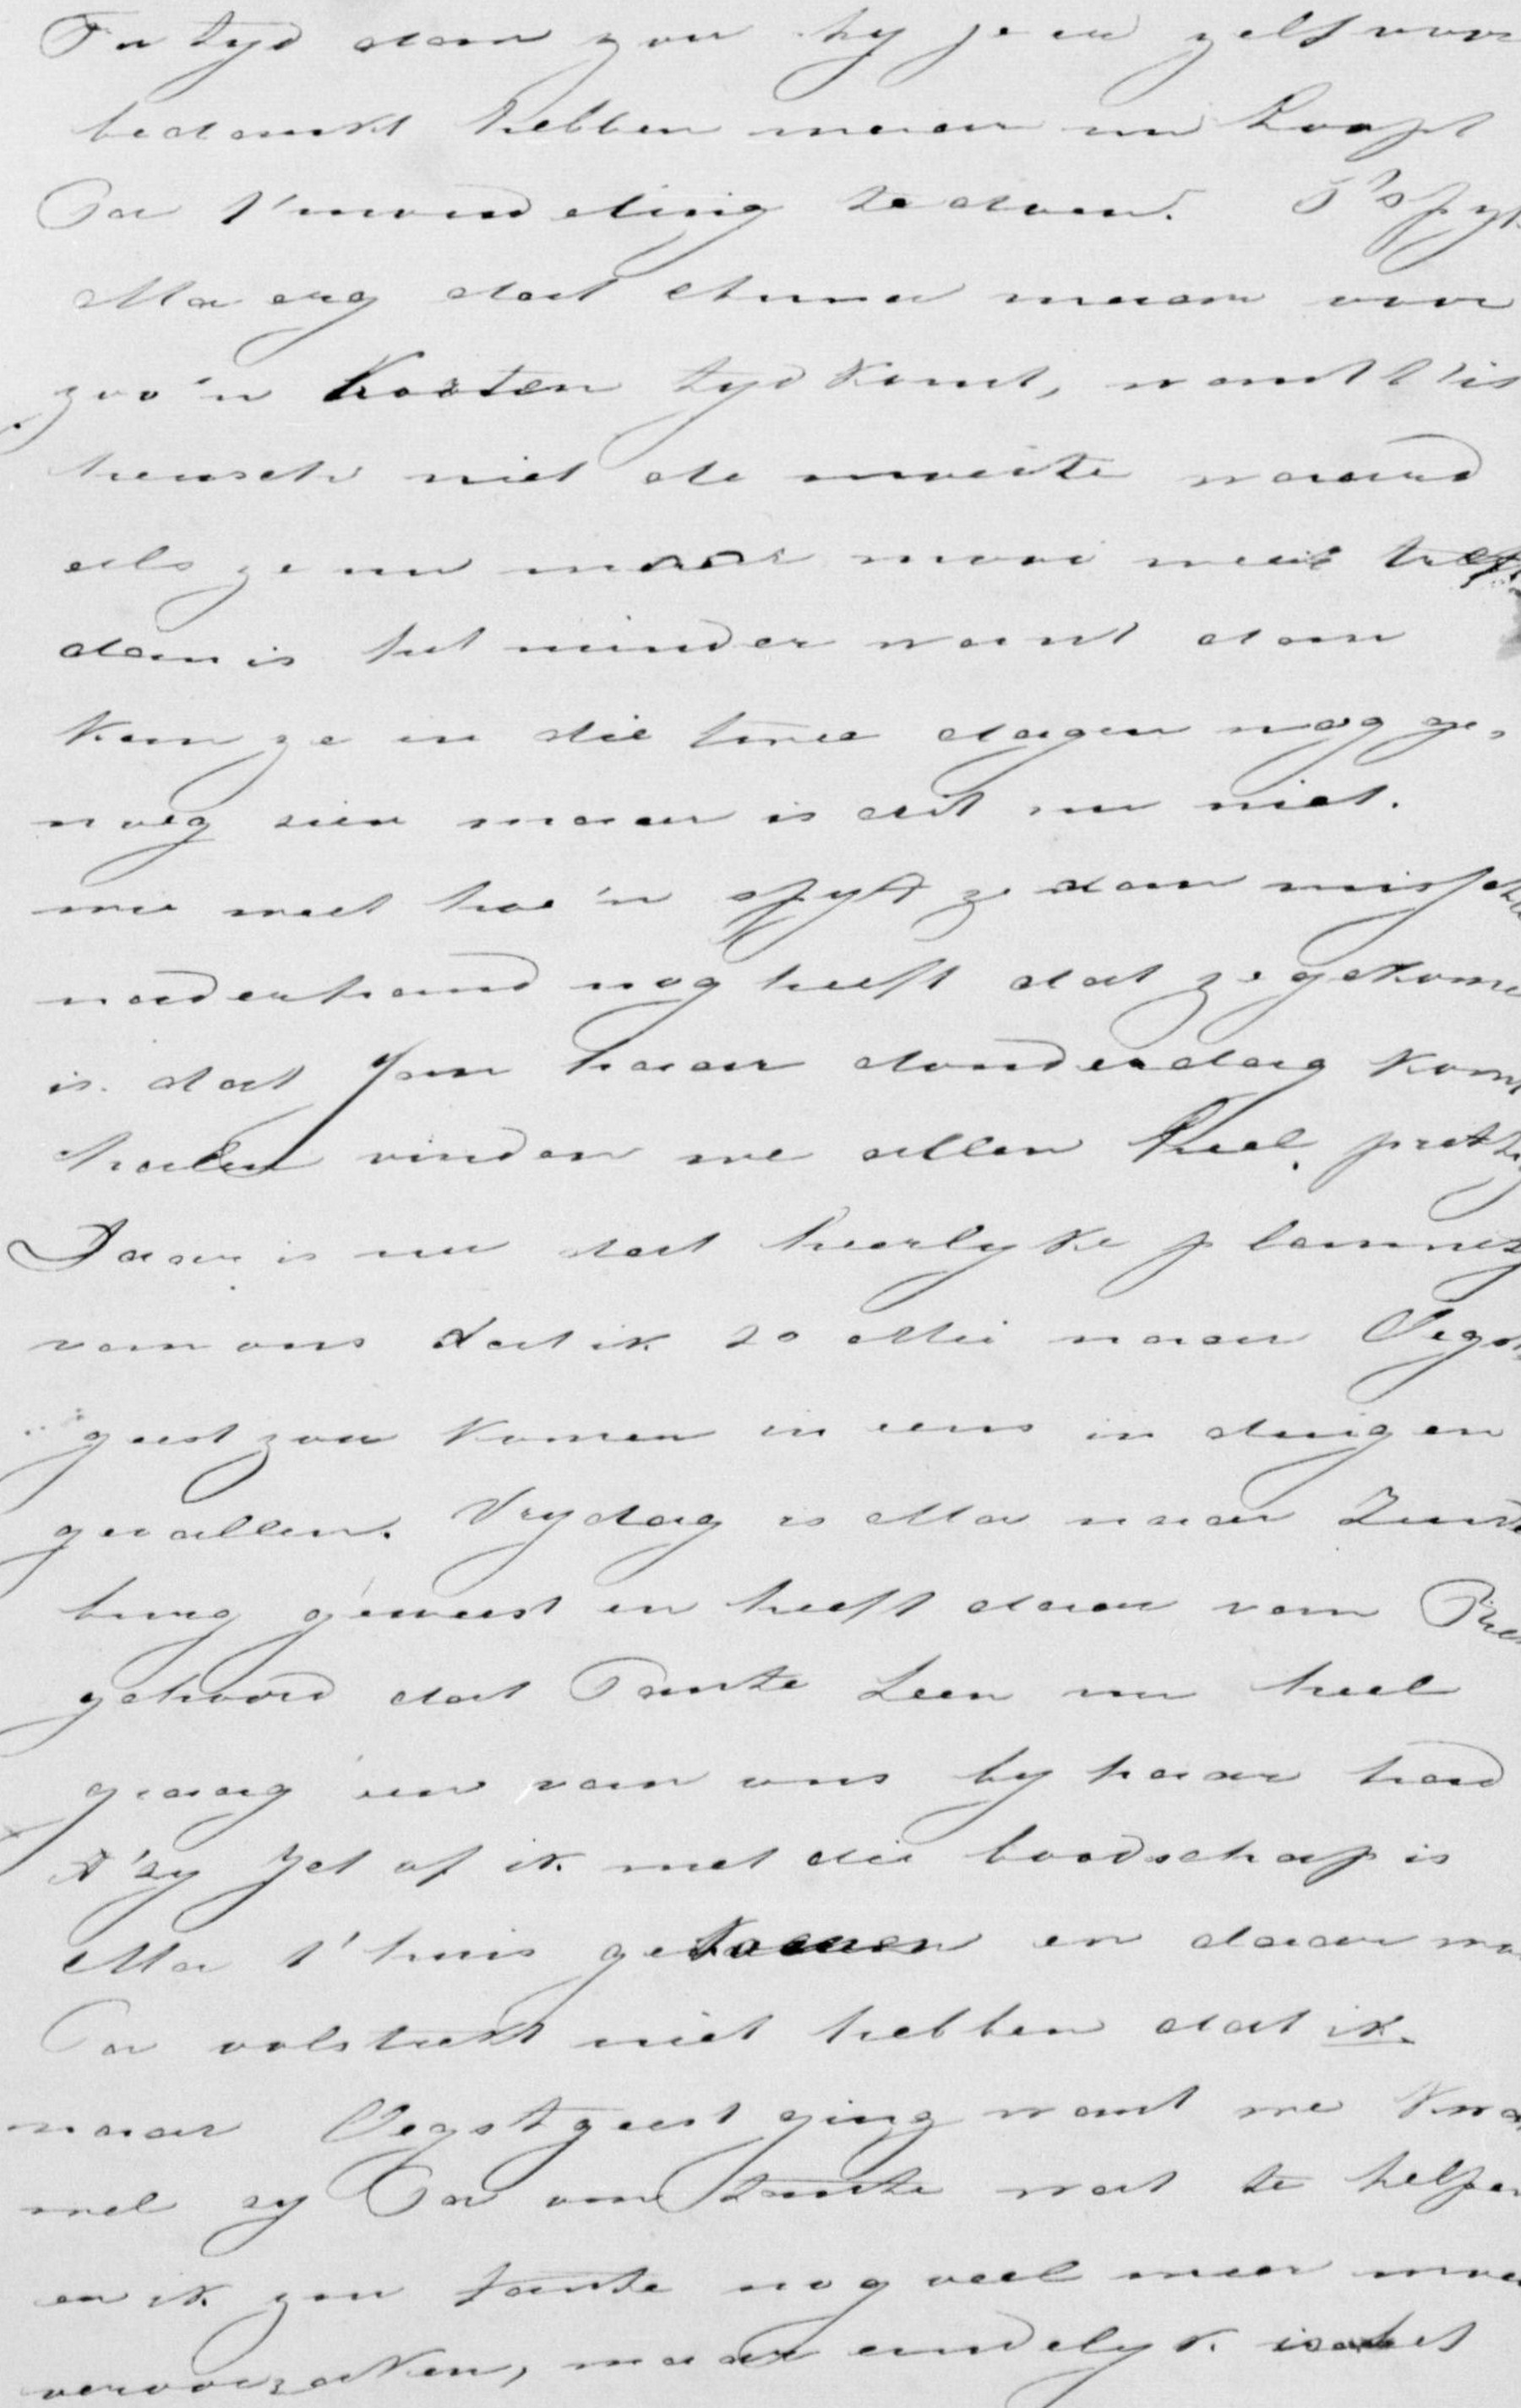 Pa tyd dan zou hy je er zelf voor
bedankt hebben maar nu hoopt
Pa t'mondeling te doen. T'spyt
Ma erg dat Anna maar voor
zoo'n korten tyd komt, want t'is
heusch niet de moeite waard
als ze nu maar mooi weer treft
dan is het minder want dan
kan ze in die twee dagen nog ge-
noeg zien maar is dit nu niet.
wie weet hoe'n spyt ze dan misschi
naderhand nog heeft dat ze gekome
is. dat Jan haar donderdag komt
halen vinden we allen heel prettig
Daar is nu dat heerlyke plannetj
van ons dat ik 20 Mei naar Oegst
geest zou komen in eens in duigen
gevallen. Vrydag is Ma naar Zuid
burg geweest en heeft daar van
gehoord dat Tante Leen nu heel
graag een van ons by haar had
t'zy Jet of ik met die boodschap is
Ma t'huis gekomen en daar wo
Pa volstrekt niet hebben dat ik
naar Oegstgeest ging want we kwa
wel zy Pa om tante wat te helpen
en ik zou tante nog veel meer moei
veroorzaken, maar eindelyk is het